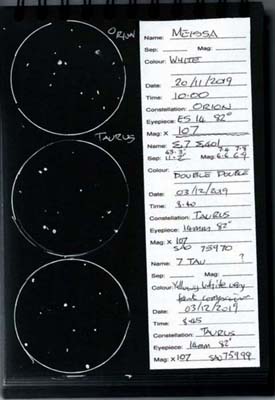 ORION
Name: MEISSA
Sep: Mag:
Colour: WHITE
Date: 20/11/2019
Time: 10:00
Constellation: ORION
Eyepiece: ES 14 82°
Mag: X 107
TAURUS
Name: Σ7 Σ401
Sep: Mag: 6.6 6.9
Colour:
DOUBLE DOUBLE
Date: 03/12/2019
Time: 8.40
Constellation: TAURUS
Eyepiece: 14mm 82°
Mag: X 107
SAO 75970
Name: 7 TAU ?
Sep: Mag:
Colour: Yellowy White very
faint companion
Date: 03/12/2019
Time: 8.45
Constellation: TAURUS
Eyepiece: 14mm 82°
Mag: X 107 SAO 75999